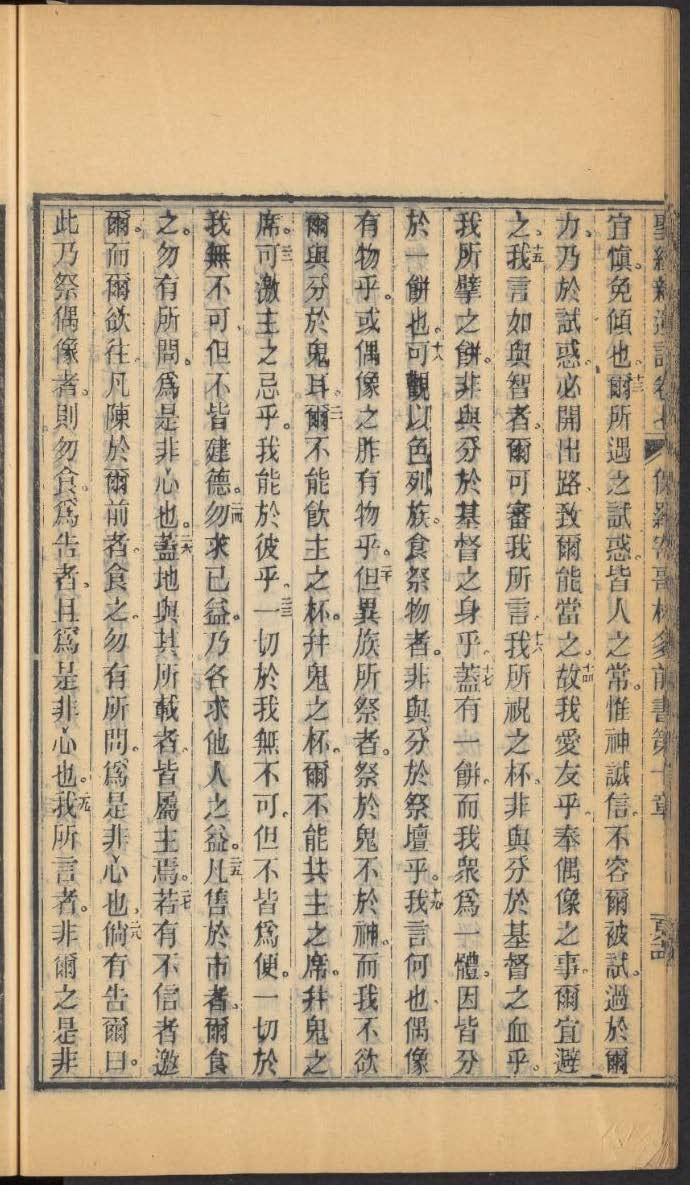 聖經新遺詔卷七 保羅寄哥林多前書第十章
宜慎。免傾也。十三爾所遇之試惑。皆人之常。惟神誠信。不容爾被試過於爾
力。乃於試惑。必開出路。致爾能當之。十四故我愛友乎。奉偶像之事。爾宜避
之。十五我言如與智者。爾可審我所言。十六我所祝之杯。非與分於基督之血乎。
我所擘之餅。非與分於基督之身乎。十七蓋有一餅。而我衆爲一體。因皆分
於一餅也。十八可觀以色列族。食祭物者。非與分於祭壇乎。十九我言何也。偶像
有物乎。或偶像之胙有物乎。二十但異族所祭者。祭於鬼不於神。而我不欲
爾與分於鬼耳。二一爾不能飲主之杯。并鬼之杯。爾不能共主之席。并鬼之
席。二二可激主之忌乎。我能於彼乎。二三一切於我無不可。但不皆爲便。一切於
我無不可。但不皆建德。二四勿求己益。乃各求他人之益。二五凡售於市者。爾食
之。勿有所問。爲是非心也。二六蓋地與其所載者。皆屬主焉。二七若有不信者邀
爾。而爾欲往。凡陳於爾前者。食之。勿有所問。爲是非心也。二八倘有告爾曰。
此乃祭偶像者。則勿食。爲告者。且爲是非心也。二九我所言者。非爾之是非